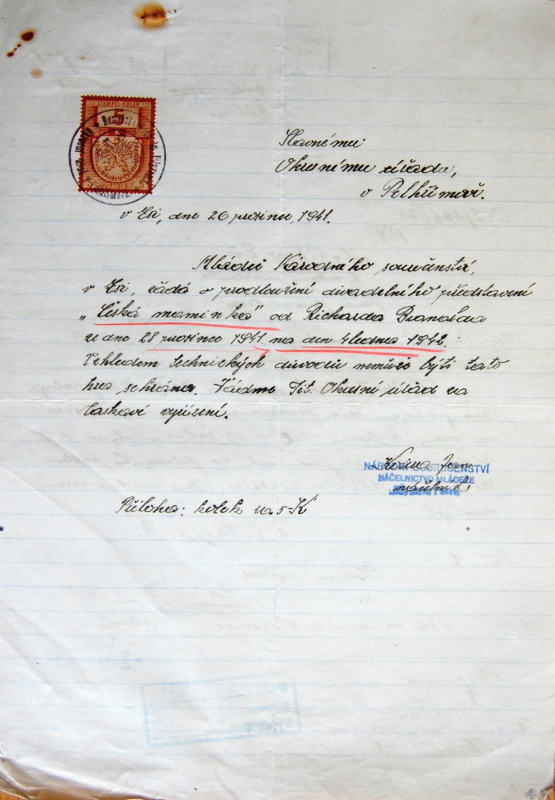 STEMPEL-KOLEK
5
Slavnému
Okresnímu úřadu,
v Pelhřimově.
v Eši, dne 26 prosince, 1941.
Mládež Národního souručenství,
v Eši, žádá o prodloužení divadelního představení
„Česká maminka" od Richarda Branalda
ze dne 28 prosince 1941 na den 4 ledna 1942.
Vzhledem technických důvodů nemůže býti tato
hra sehrána. Žádáme Tit. Okresní úřad za
laskavé vyřízení.
NÁRODNÍ SOURUČENSTVÍ
NÁČELNICTVO MLÁDEŽE
Příloha: kolek za 5 K